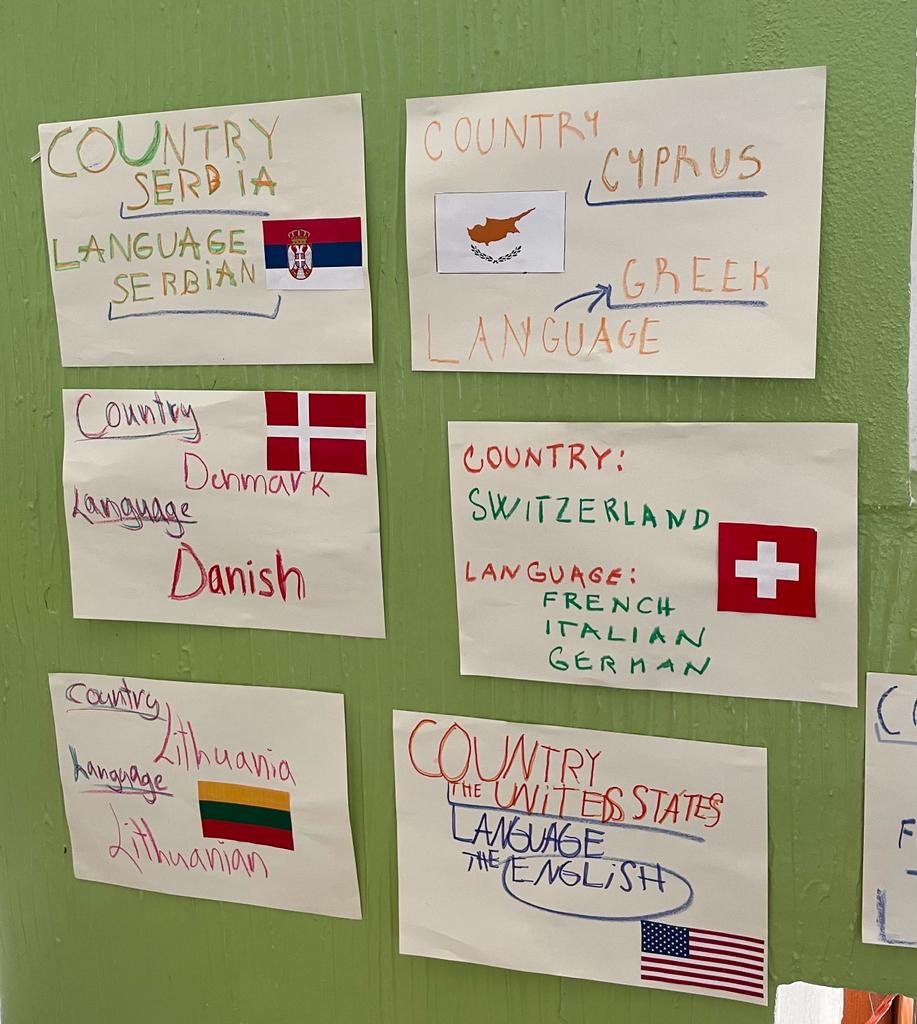 COUNTRY
SERBIA
LANGUAGE
SERBIAN
COUNTRY
CYPRUS
GREEK
LANGUAGE
Country
Denmark
Language
Danish
COUNTRY:
SWITZERLAND
LANGUAGE:
FRENCH
ITALIAN
GERMAN
Country
Lithuania
Language
Lithuanian
COUNTRY
THE UNITED STATES
LANGUAGE
THE ENGLISH